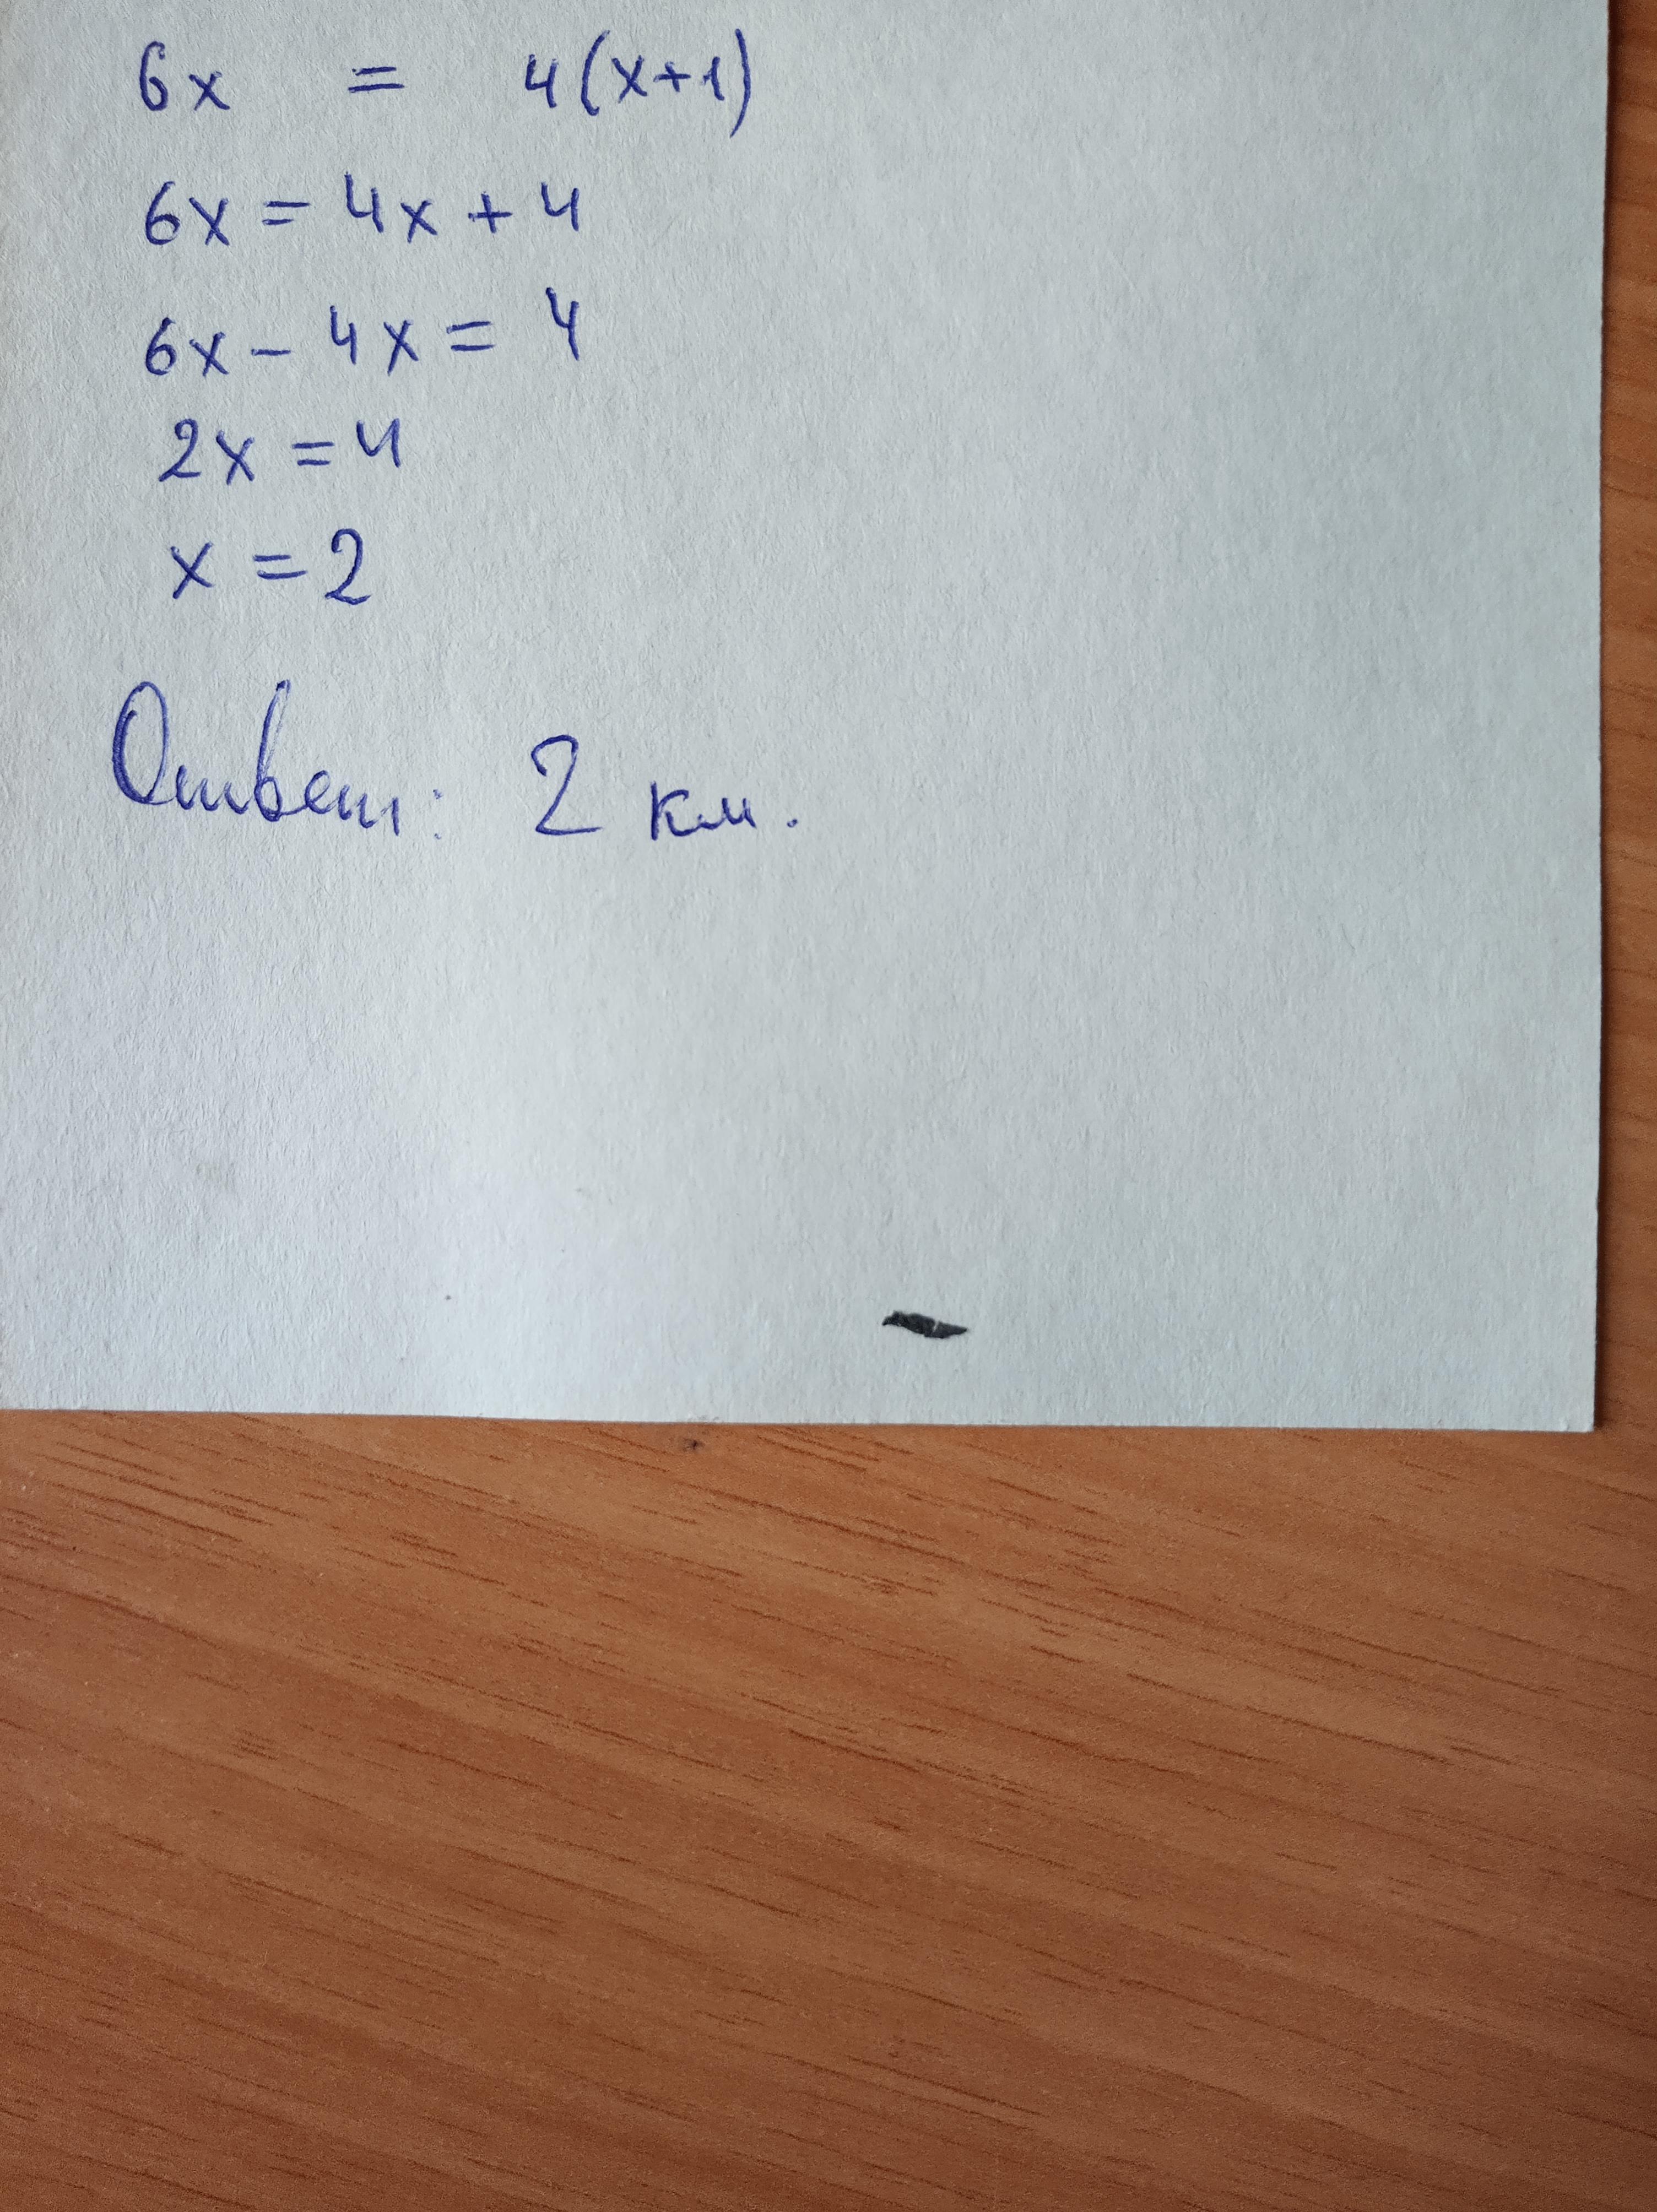 6x = 4(x+1)
6x = 4x + 4
6x - 4x = 4
2x = 4
x = 2
Ответ: 2 км.